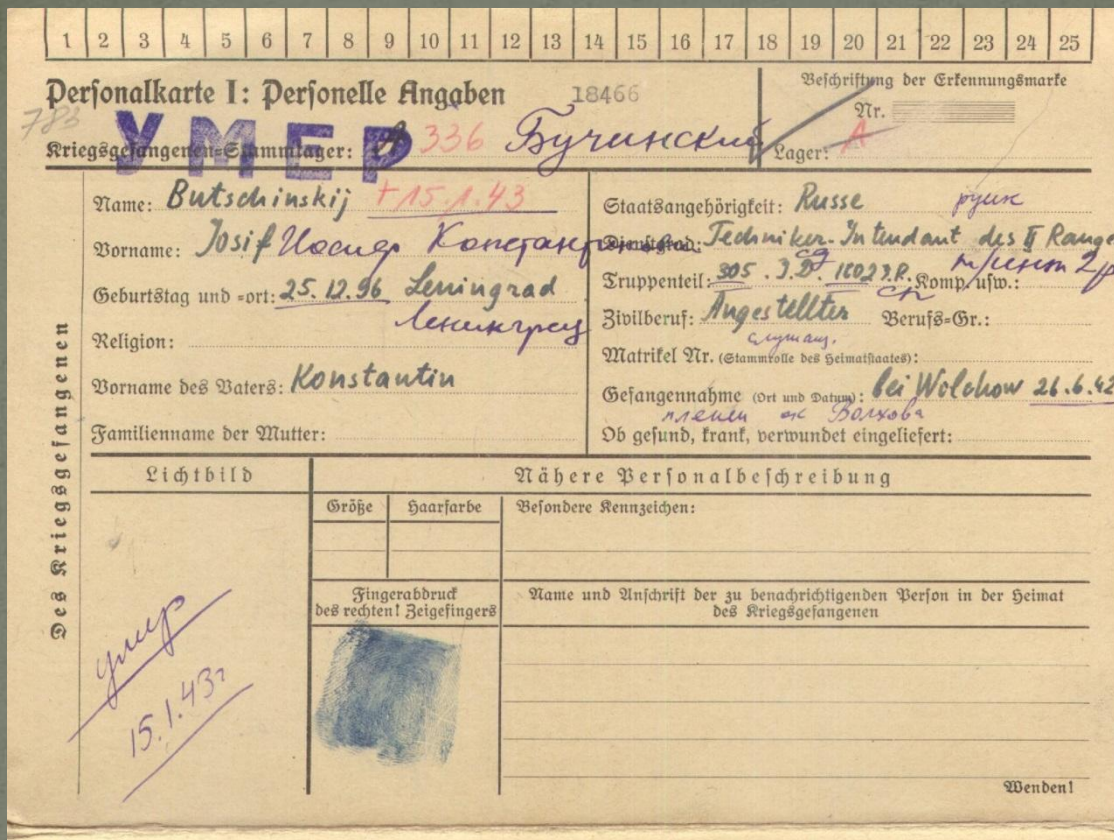 1 2 3 4 5 6 7 8 9 10 11 12 13 14 15 16 17 18 19 20 21 22 23 24 25
Personalkarte I: Personelle Angaben
18466
Beschriftung der Erkennungsmarke
Nr.
783
УМЕР
Kriegsgefangenen-Stammlager: A 336 Бучинский
Lager: A
Des Kriegsgefangenen
Name: Butschinskij +15.1.43
Vorname: Josif Иосиф
Geburtstag und =ort: 25.12.96 Leningrad
Ленинград
Religion:
Vorname des Vaters: Konstantin
Familienname der Mutter:
Staatsangehörigkeit: Russe
Dienstgrad: Techniker-Intendant des II Ranges
Truppenteil: 305. J.D. Komp. usw.:
Zivilberuf: Angestellter Berufs-Gr.:
Matrikel Nr. (Stammrolle des Heimatstaates):
Gefangennahme (Ort und Datum): bei Wolchow 26.6.42
пленен Волхова
Ob gesund, krank, verwundet eingeliefert:
Lichtbild
умер
15.1.43г
Nähere Personalbeschreibung
Größe Haarfarbe Besondere Kennzeichen:
Fingerabdruck
des rechten! Zeigefingers
Name und Anschrift der zu benachrichtigenden Person in der Heimat
des Kriegsgefangenen
Wenden!